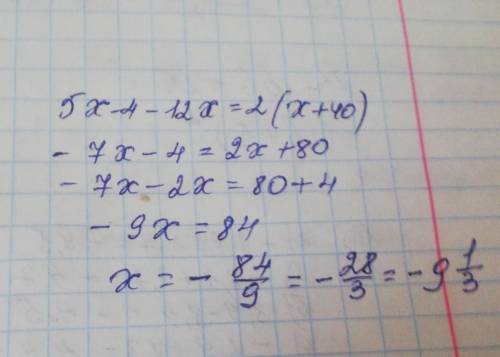 5x-4-12x=2(x+40)
-7x-4=2x+80
-7x-2x=80+4
-9x=84
x=-84/9=-28/3=-9 1/3